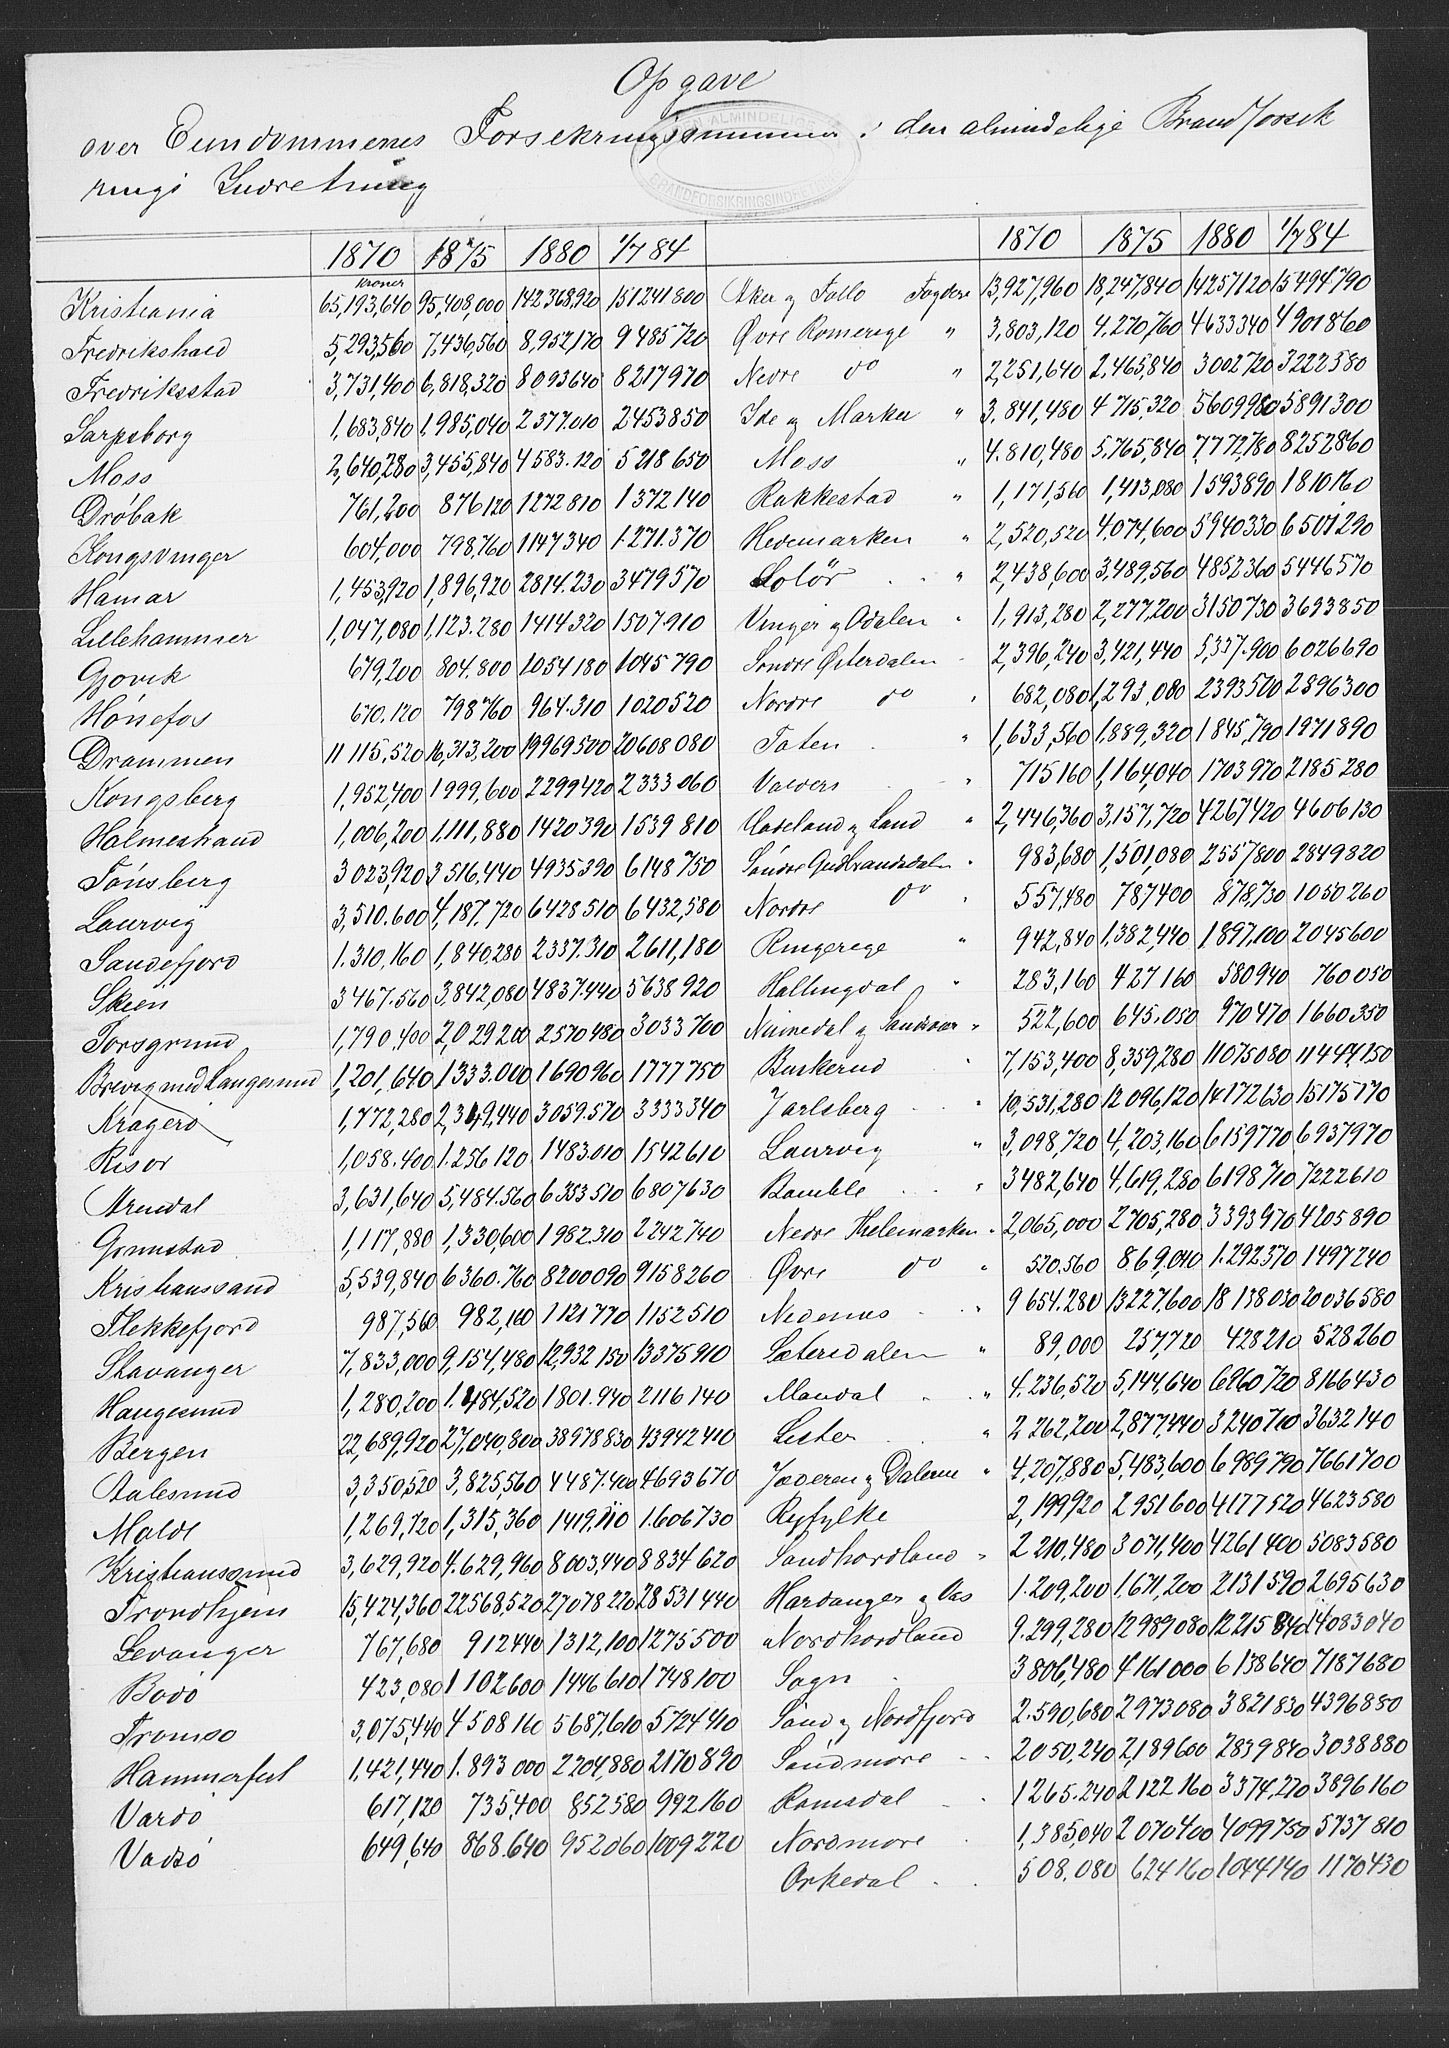 Opgave
over Eiendommenes Forsikringssummer i den almindelige Brandforsik
rings Indretning
DEN ALMINDELIGE
BRANDFORSIKRINGSINDR
1870 1875 1880 1/7 84 1870 1875 1880 1/7 84
Kroner
Kristiania 65,193,640 95,408,000 142368,920 151241800 Aker og Follo Fogderi 13,927,960 18,247,840 14257120 15494790
Fredrikshald 5,293,560 7,436,560 8,952170 9485720 Øvre Romerige " 3,803,120 4,270,760 4633340 4901860
Fredriksstad 3,731,400 6,818,320 8093640 8217970 Nedre do " 2,251,640 2,465,840 3002720 3222380
Sarpsborg 1,683,840 1,985,040 2377.010 2453850 Ide og Marker " 3,841,480 4715,320 5609980 5891300
Moss 2,640,280 3,455,840 4583.120 5218650 Moss " 4.810,480 5,765,840 7,772,780 8252860
Drøbak 761,200 876,120 1272810 1372140 Rakkestad " 1,171,560 1,413,080 1593890 1810160
Kongsvinger 604,000 798,760 1147340 1.271.370 Hedemarken " 2,520,520 4,074,600 5940330 6501290
Hamar 1,453,920 1,896,920 2814.230 3479570 Solør " 2,438,600 3,489,560 4852360 5446570
Lillehammer 1,047,080 1,123.280 1414320 1507910 Vinger og Odalen " 1,913,280 2,277,200 3150730 3693850
Gjøvik 679,200 804.800 1054180 1045790 Søndre Østerdalen " 2,396,240 3,421,440 5,337.900 6026690
Hønefos 670.120 798760 964.310 1020520 Nordre do " 682,080 1,293,080 2393500 2896300
Drammen 11115,520 16,313,200 19969500 20608080 Toten " 1,633,560 1,889,320 1845,790 1971890
Kongsberg 1,952,400 1999,600 2299420 2333060 Valders " 715160 1,164,040 1703970 2185280
Holmestrand 1,006,200 1.111,880 1420390 1539810 Hadeland og Land " 2,446,360 3,157,720 4267420 4606130
Tønsberg 3023,920 3516,440 4935390 6148750 Søndre Gudbrandsdalen " 983,680 1,501,080 2557800 2849820
Laurvig 3,510.600 4,187,720 6428510 6432,580 Nordre do " 557,480 787,400 878,730 1050260
Sandefjord 1.310,160 1,840,280 2337.310 2611,180 Ringerige " 942,840 1,382,440 1897,100 2045600
Skien 3467.560 3,842,080 4837.440 5638920 Hallingdal " 283,160 427160 580940 760050
Porsgrund 1,790.400 2,029200 2570480 3033700 Numedal og Sandsvær " 522,600 645.050 970470 1660350
Brevig med Langesund 1,201,640 1333.000 1690960 1777750 Buskerud " 7,153,400 8,359,280 11075080 11444150
Kragerø 1,772,280 2,349,440 3059.570 3333340 Jarlsberg " 10,531,280 12096,120 14172630 15175170
Risør 1,058.400 1.256120 1483.010 1542610 Laurvig " 3,098,720 4,203,160 6159770 6937970
Arendal 3,631,640 5,484.560 6353510 6807630 Bamble " 3482,640 4,619,280 6198710 7222610
Grimstad 1,117,880 1,330,600 1982.310 2242740 Nedre Thelemarken " 2,065,000 2705,280 3393970 4205890
Kristianssand 5,539,840 6360.760 8200090 9158260 Øvre do " 520.560 869,040 1.292370 1497240
Flekkefjord 987,560 982,160 1121770 1152510 Nedenes " 9654.280 13227,600 18138030 20036580
Stavanger 7,833,000 9,154,480 12,932150 13375910 Sæterdalen " 89,000 257,720 428210 528260
Haugesund 1,280,200 1.484,520 1801.940 2116140 Mandal " 4.236,520 5,144,640 6960720 8166430
Bergen 22,689,920 27,040,800 38978830 43942410 Lister " 2262,200 2,877,440 3240710 3632140
Aalesund 3,350,520 3,825,560 4487.400 4693670 Jæderen og Dalerne " 4,207,880 5,483,600 6989790 7661700
Molde 1,269,720 1,315,360 1419,110 1.606730 Ryfylke 2,199,920 2951600 4177520 4623580
Kristianssund 3,629,920 4.629,960 8003,440 8834620 Søndhordland " 2210,480 3071,400 4261400 5083580
Trondhjem 15,424,360 22568,520 27078220 28531440 Hardanger og Vos 1.209,200 1.671,200 2131590 2695630
Levanger 767,680 912440 1312,100 1275500 Nordhordland 9.299,280 12989080 12215840 14083040
Bodø 423,080 1102600 1446610 1748100 Sogn 3806,480 4161000 6138640 7187680
Tromsø 3,075,440 4508160 5687,610 5724410 Sønd og Nordfjord 2.590,680 2973080 3821830 4396850
Hammerfest 1,421,440 1.893000 2204,880 2170890 Søndmøre 2050,240 2,189600 2839840 3038880
Vardø 617,120 735,400 852580 992160 Romsdal 1265.240 2122160 3374,270 3896160
Vadsø 649,640 868.640 952060 1009220 Nordmøre 1,385,040 2070400 4099750 5737810
Orkedal 508,080 624160 1044140 1170430